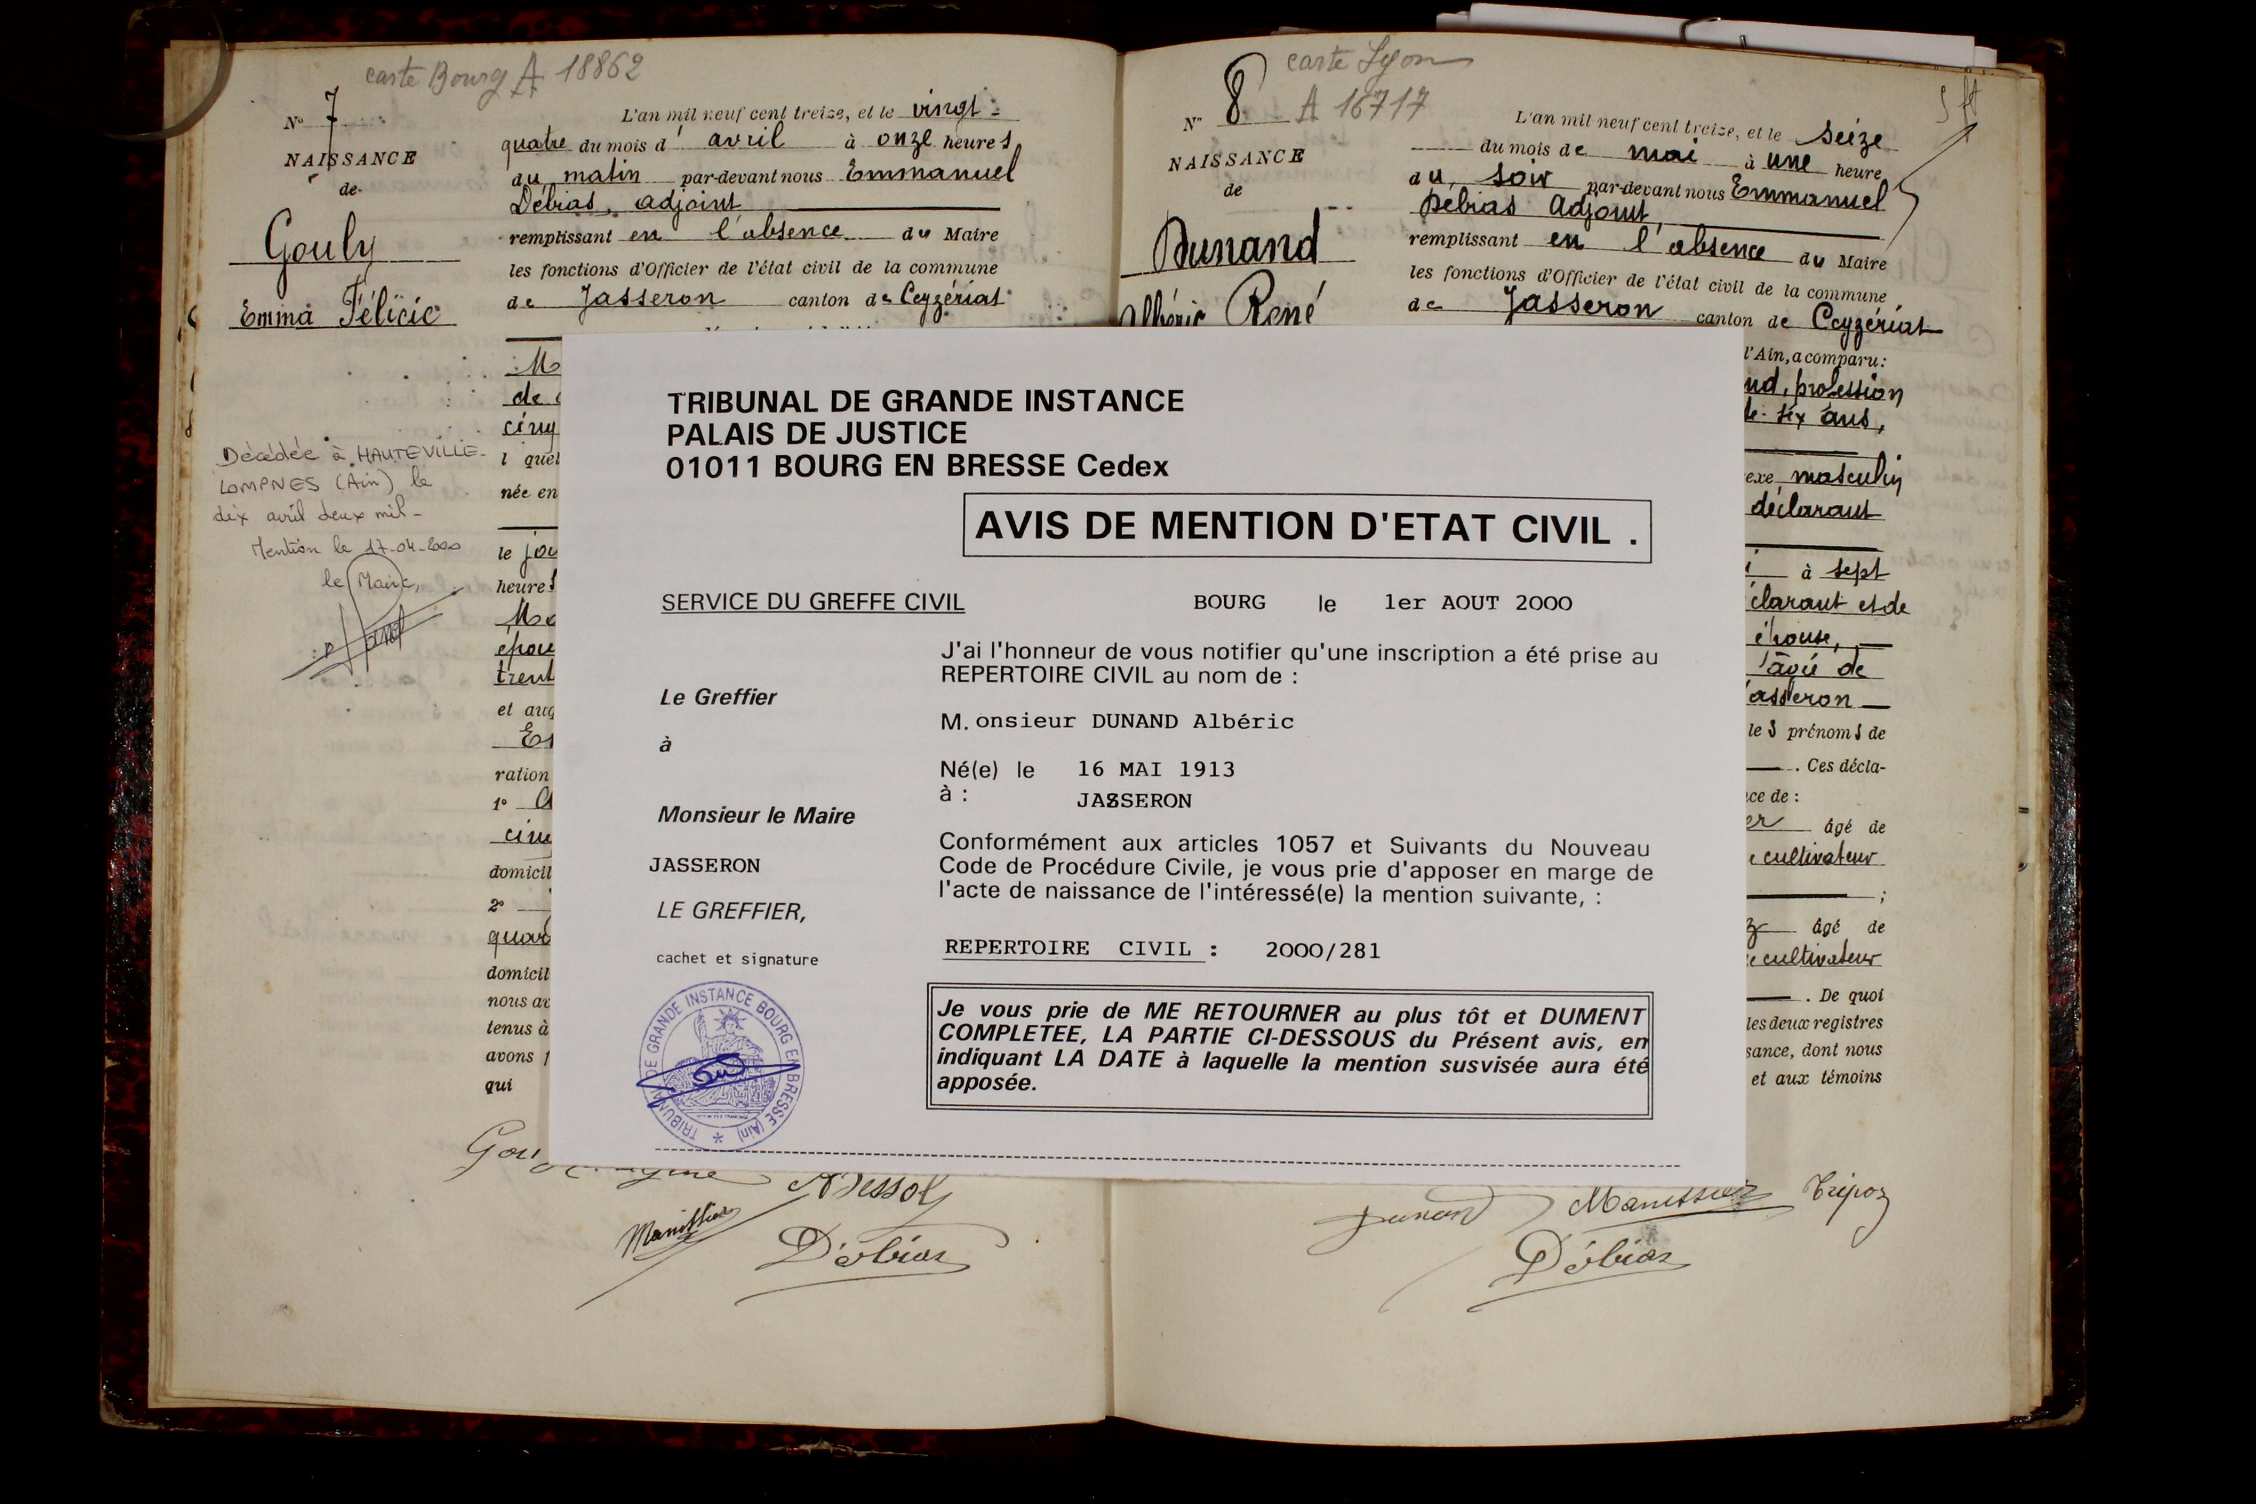 carte Bourg A 18862
N° 7
NAISSANCE
de
Gouly
Emma Félicie
L'an mil neuf cent treize, et le vingt
quatre du mois d'avril à onze heures
du matin par-devant nous Emmanuel
Débias, adjoint
remplissant en l'absence du Maire
les fonctions d'Officier de l'état civil de la commune
de Jasseron canton de Ceyzériat
Décédée à HAUTEVILLE-
LOMPNES (Ain) le
dix avril deux mil -
Mention le 17-04-2000
le Maire,
de
cinq
l quel
née en
le jou
heures
épou
trent
et aug
ration
1°
cinq
domicil
2°
quar
domicil
nous av
tenus à
avons
qui
Manissier
Débias
carte Lyon
A 16717
N° 8
NAISSANCE
de
Dunand
Albéric René
L'an mil neuf cent treize, et le seize
du mois de mai à une heure
du soir par-devant nous Emmanuel
Débias Adjoint
remplissant en l'absence du Maire
les fonctions d'Officier de l'état civil de la commune
de Jasseron canton de Ceyzériat
l'Ain, a comparu :
nd, profession
te-six ans,
exe masculin
déclarant
à sept
clarant et de
épouse,
âgé de
Jasseron
les prénoms de
. Ces décla-
ce de :
er âgé de
cultivateur
;
z âgé de
cultivateur
. De quoi
les deux registres
sance, dont nous
et aux témoins
Dunand Manissier Tripoz
Débias
TRIBUNAL DE GRANDE INSTANCE
PALAIS DE JUSTICE
01011 BOURG EN BRESSE Cedex
AVIS DE MENTION D'ETAT CIVIL .
SERVICE DU GREFFE CIVIL
BOURG le 1er AOUT 2000
J'ai l'honneur de vous notifier qu'une inscription a été prise au
REPERTOIRE CIVIL au nom de :
Le Greffier
M.onsieur DUNAND Albéric
à
Né(e) le 16 MAI 1913
à : JASSERON
Monsieur le Maire
JASSERON
Conformément aux articles 1057 et Suivants du Nouveau
Code de Procédure Civile, je vous prie d'apposer en marge de
l'acte de naissance de l'intéressé(e) la mention suivante, :
LE GREFFIER,
cachet et signature
REPERTOIRE CIVIL : 2000/281
Je vous prie de ME RETOURNER au plus tôt et DUMENT
COMPLETEE, LA PARTIE CI-DESSOUS du Présent avis, en
indiquant LA DATE à laquelle la mention susvisée aura été
apposée.
TRIBUNAL DE GRANDE INSTANCE BOURG EN BRESSE (Ain)